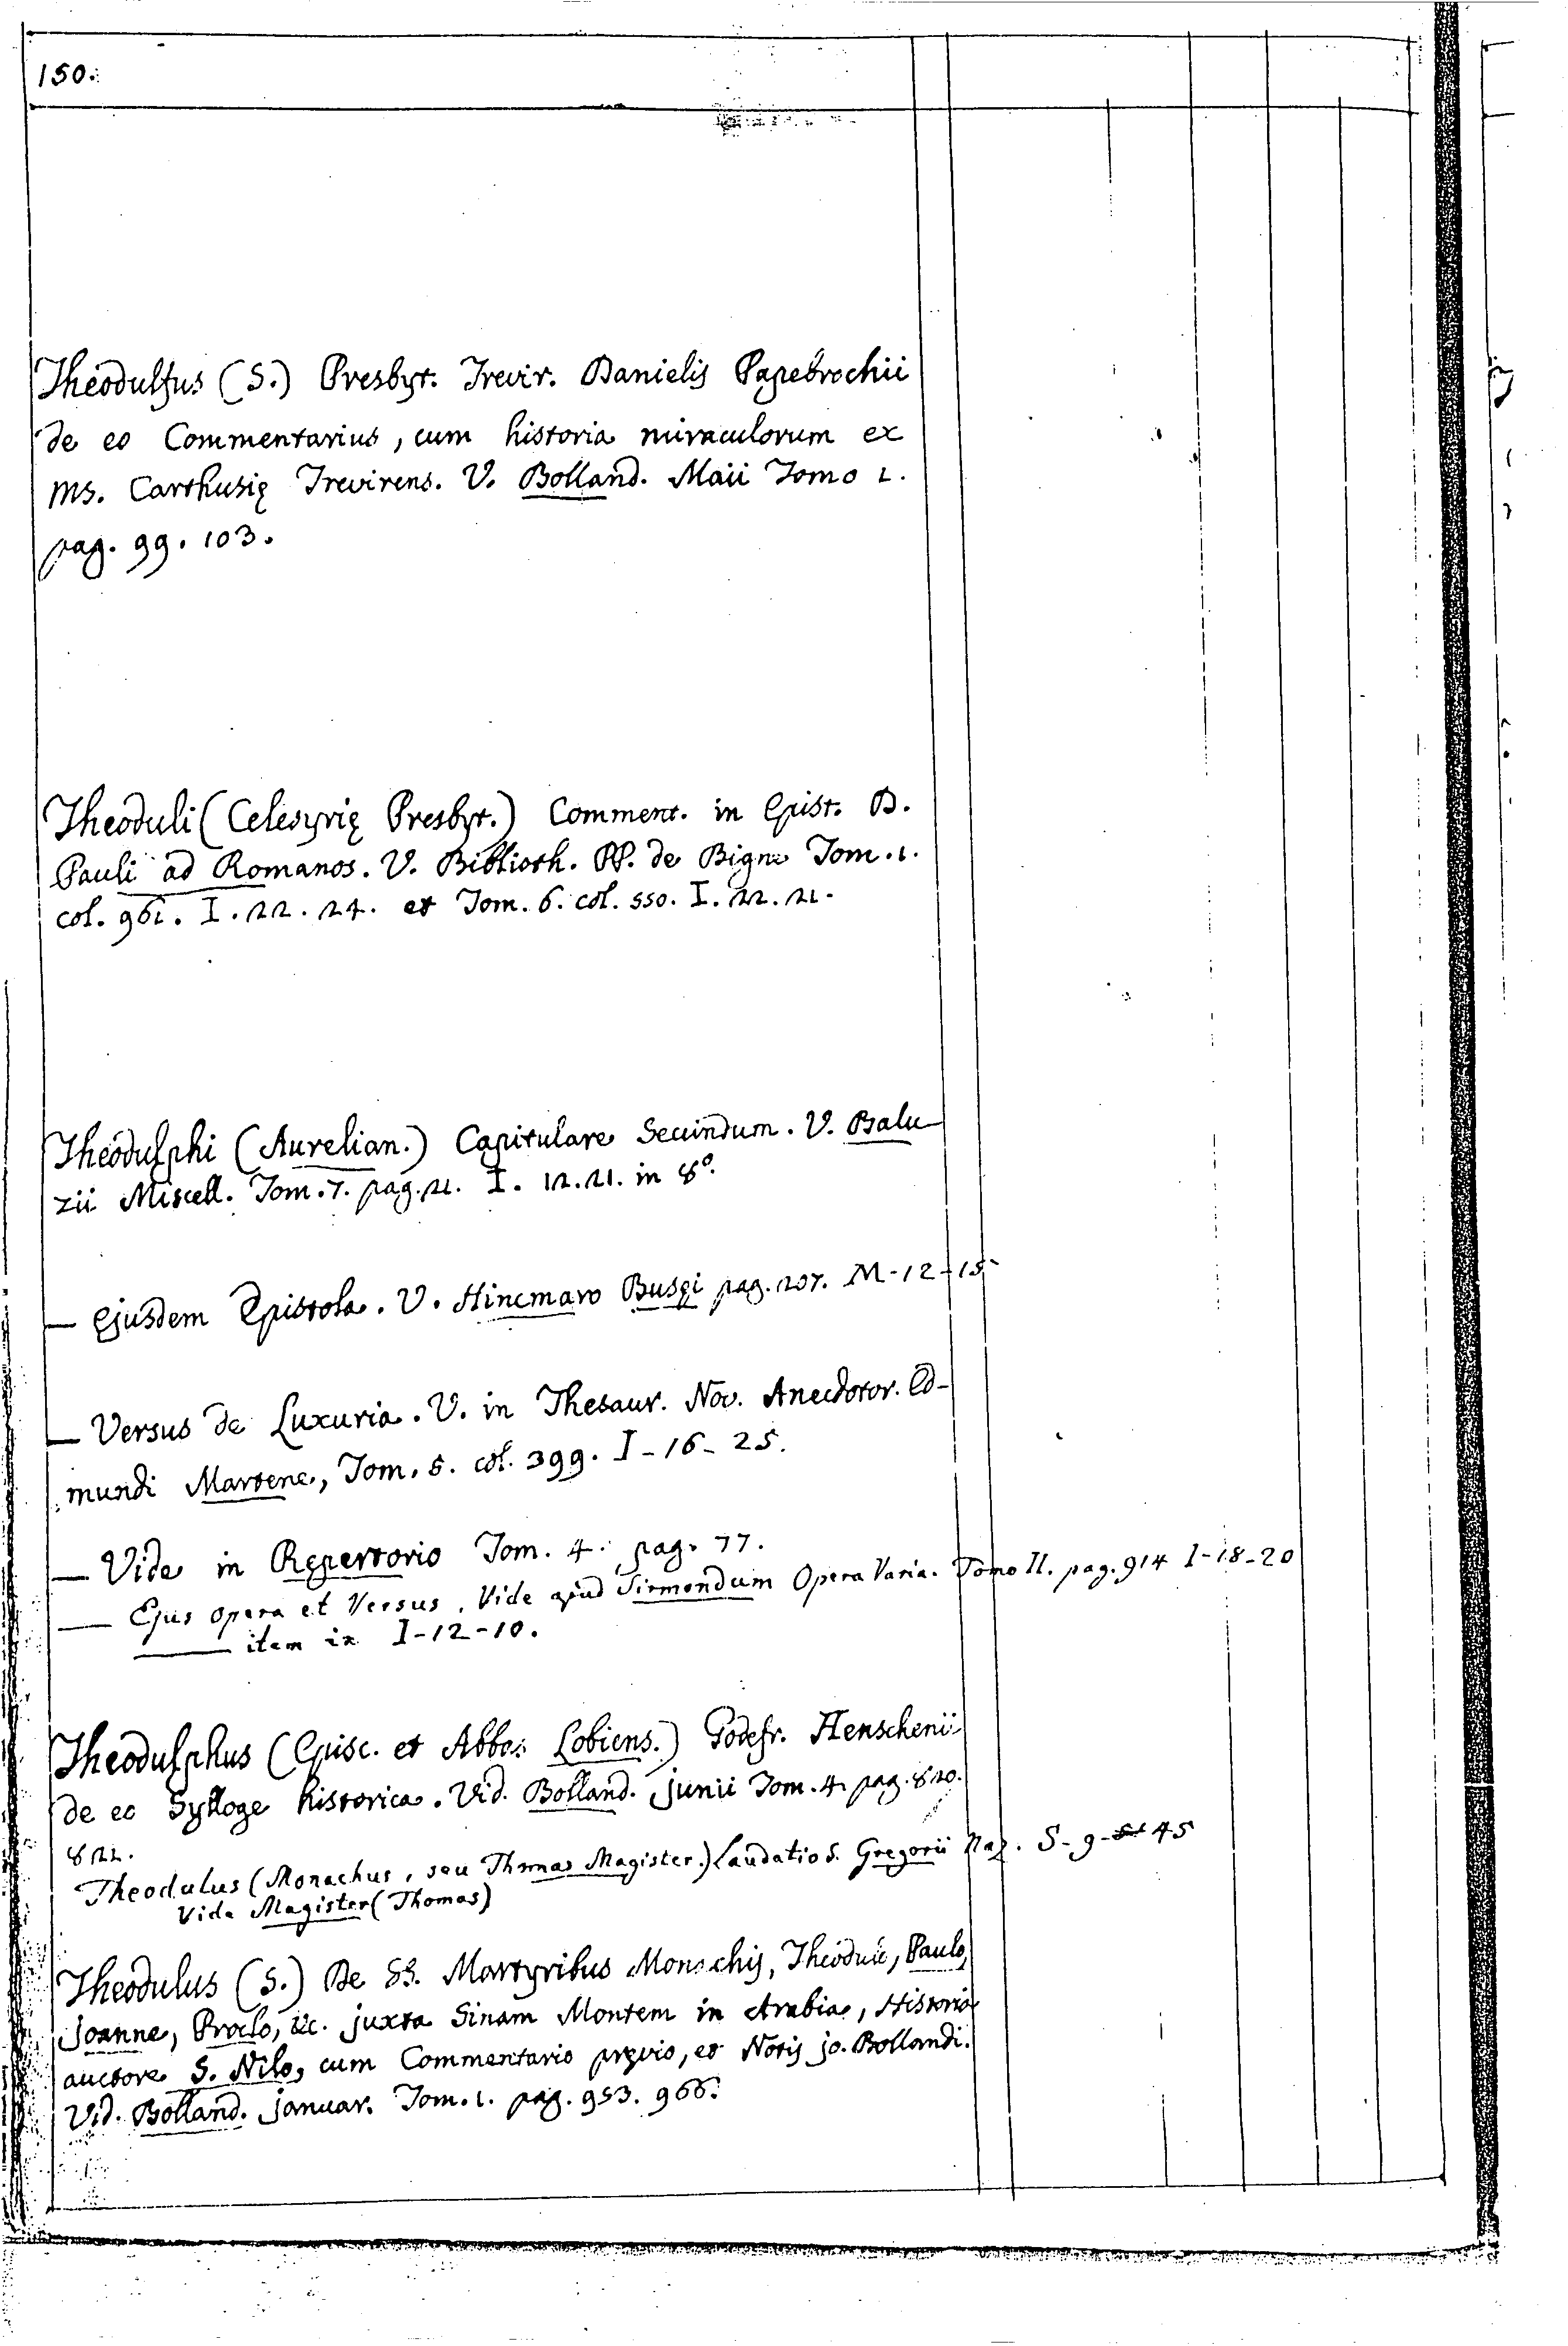 150.
Theodulfus (S.) Presbyt. Trevir. Danielis Papebrochii
de eo Commentarius, cum historia miraculorum ex
ms. Carthusię Trevirens. V. Bolland. Maii Tomo 1.
pag. 99. 103.
Theoduli (Celesyrię Presbyt.) Comment. in Epist. D.
Pauli ad Romanos. V. Biblioth. PP. de Bigne Tom. 1.
col. 961. I. 22. 24. et Tom. 6. col. 550. I. 22. 21.
Theodulphi (Aurelian.) Capitulare Secundum. V. Balu-
zii Miscell. Tom. 7. pag. 21. I. 12. 21. in 8º.
— Ejusdem Epistola. V. Hincmaro Busęi pag. 207. M-12-15
— Versus de Luxuria. V. in Thesaur. Nov. Anecdotor. Ed-
mundi Martene, Tom. 5. col. 399. I-16-25.
— Vide in Repertorio Tom. 4. pag. 77.
— Ejus opera et Versus. Vide apud Sirmondum Opera Varia. Tomo II. pag. 914 I-18-20
— item in I-12-10.
Theodulphus (Episc. et Abbas Lobiens.) Godefr. Henschenii
de eo Sylloge historica. Vid. Bolland. Junii Tom. 4. pag. 820.
822.
Theodulus (Monachus, seu Thomas Magister.) Laudatio S. Gregorii Naz. S-9- 45
Vide Magister (Thomas)
Theodulus (S.) De SS. Martyribus Monachis, Theodulo, Paulo,
Joanne, Proclo, &c. juxta Sinam Montem in Arabia, Historia
auctore S. Nilo, cum Commentario pręvio, et Notis Jo. Bollandi.
Vid. Bolland. Januar. Tom. 1. pag. 953. 966.